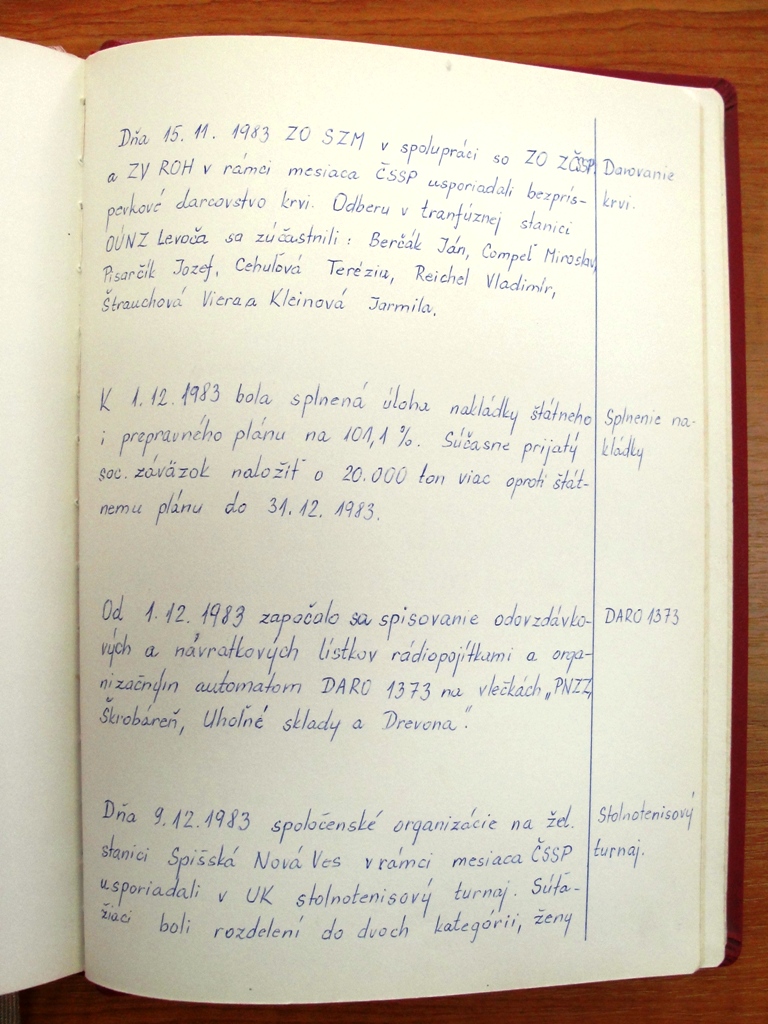 Dňa 15. 11. 1983 ZO SZM v spolupráci so ZO ZČSSP
a ZV ROH v rámci mesiaca ČSSP usporiadali bezprís-
pevkové darcovstvo krvi. Odberu v tranfúznej stanici
OÚNZ Levoča sa zúčastnili: Berčák Ján, Compeľ Miroslav,
Pisarčík Jozef, Cehuľová Terézia, Reichel Vladimír,
Štrauchová Viera a Kleinová Jarmila.
Darovanie
krvi.
K 1. 12. 1983 bola splnená úloha nakládky štátneho
i prepravného plánu na 101,1 %. Súčasne prijatý
soc. záväzok naložiť o 20.000 ton viac oproti štát-
nemu plánu do 31. 12. 1983.
Splnenie na-
kládky
Od 1. 12. 1983 započalo sa spisovanie odovzdávko-
vých a návratkových lístkov rádiopojítkami a orga-
nizačným automatom DARO 1373 na vlečkách „PNZZ,
Škrobáreň, Uhoľné sklady a Drevona“.
DARO 1373
Dňa 9. 12. 1983 spoločenské organizácie na žel.
stanici Spišská Nová Ves v rámci mesiaca ČSSP
usporiadali v UK stolnotenisový turnaj. Súťa-
žiaci boli rozdelení do dvoch kategórii, ženy
Stolnotenisový
turnaj.